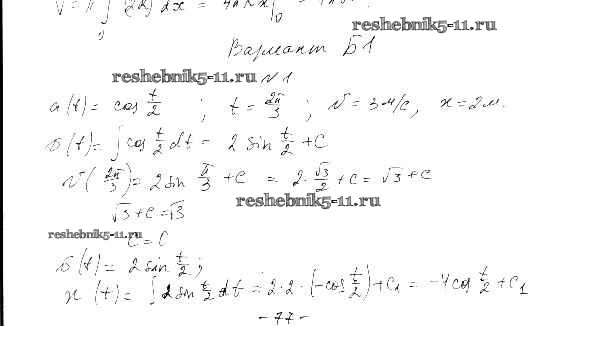 V = π ∫ (2x) dx = 4πx
reshebnik5-11.ru
Вариант Б1
reshebnik5-11.ru №1
a(t) = cos t/2 ; t = 2π/3 ; v = 3 м/с, x = 2 м.
v(t) = ∫ cos t/2 dt = 2 sin t/2 + C
v(2π/3) = 2 sin π/3 + C = 2 · √3/2 + C = √3 + C
√3 + C = √3
reshebnik5-11.ru
reshebnik5-11.ru C = C
v(t) = 2 sin t/2 ;
x(t) = ∫ 2 sin t/2 dt = 2 · 2 · (-cos t/2) + C₁ = -4 cos t/2 + C₁
- 77 -